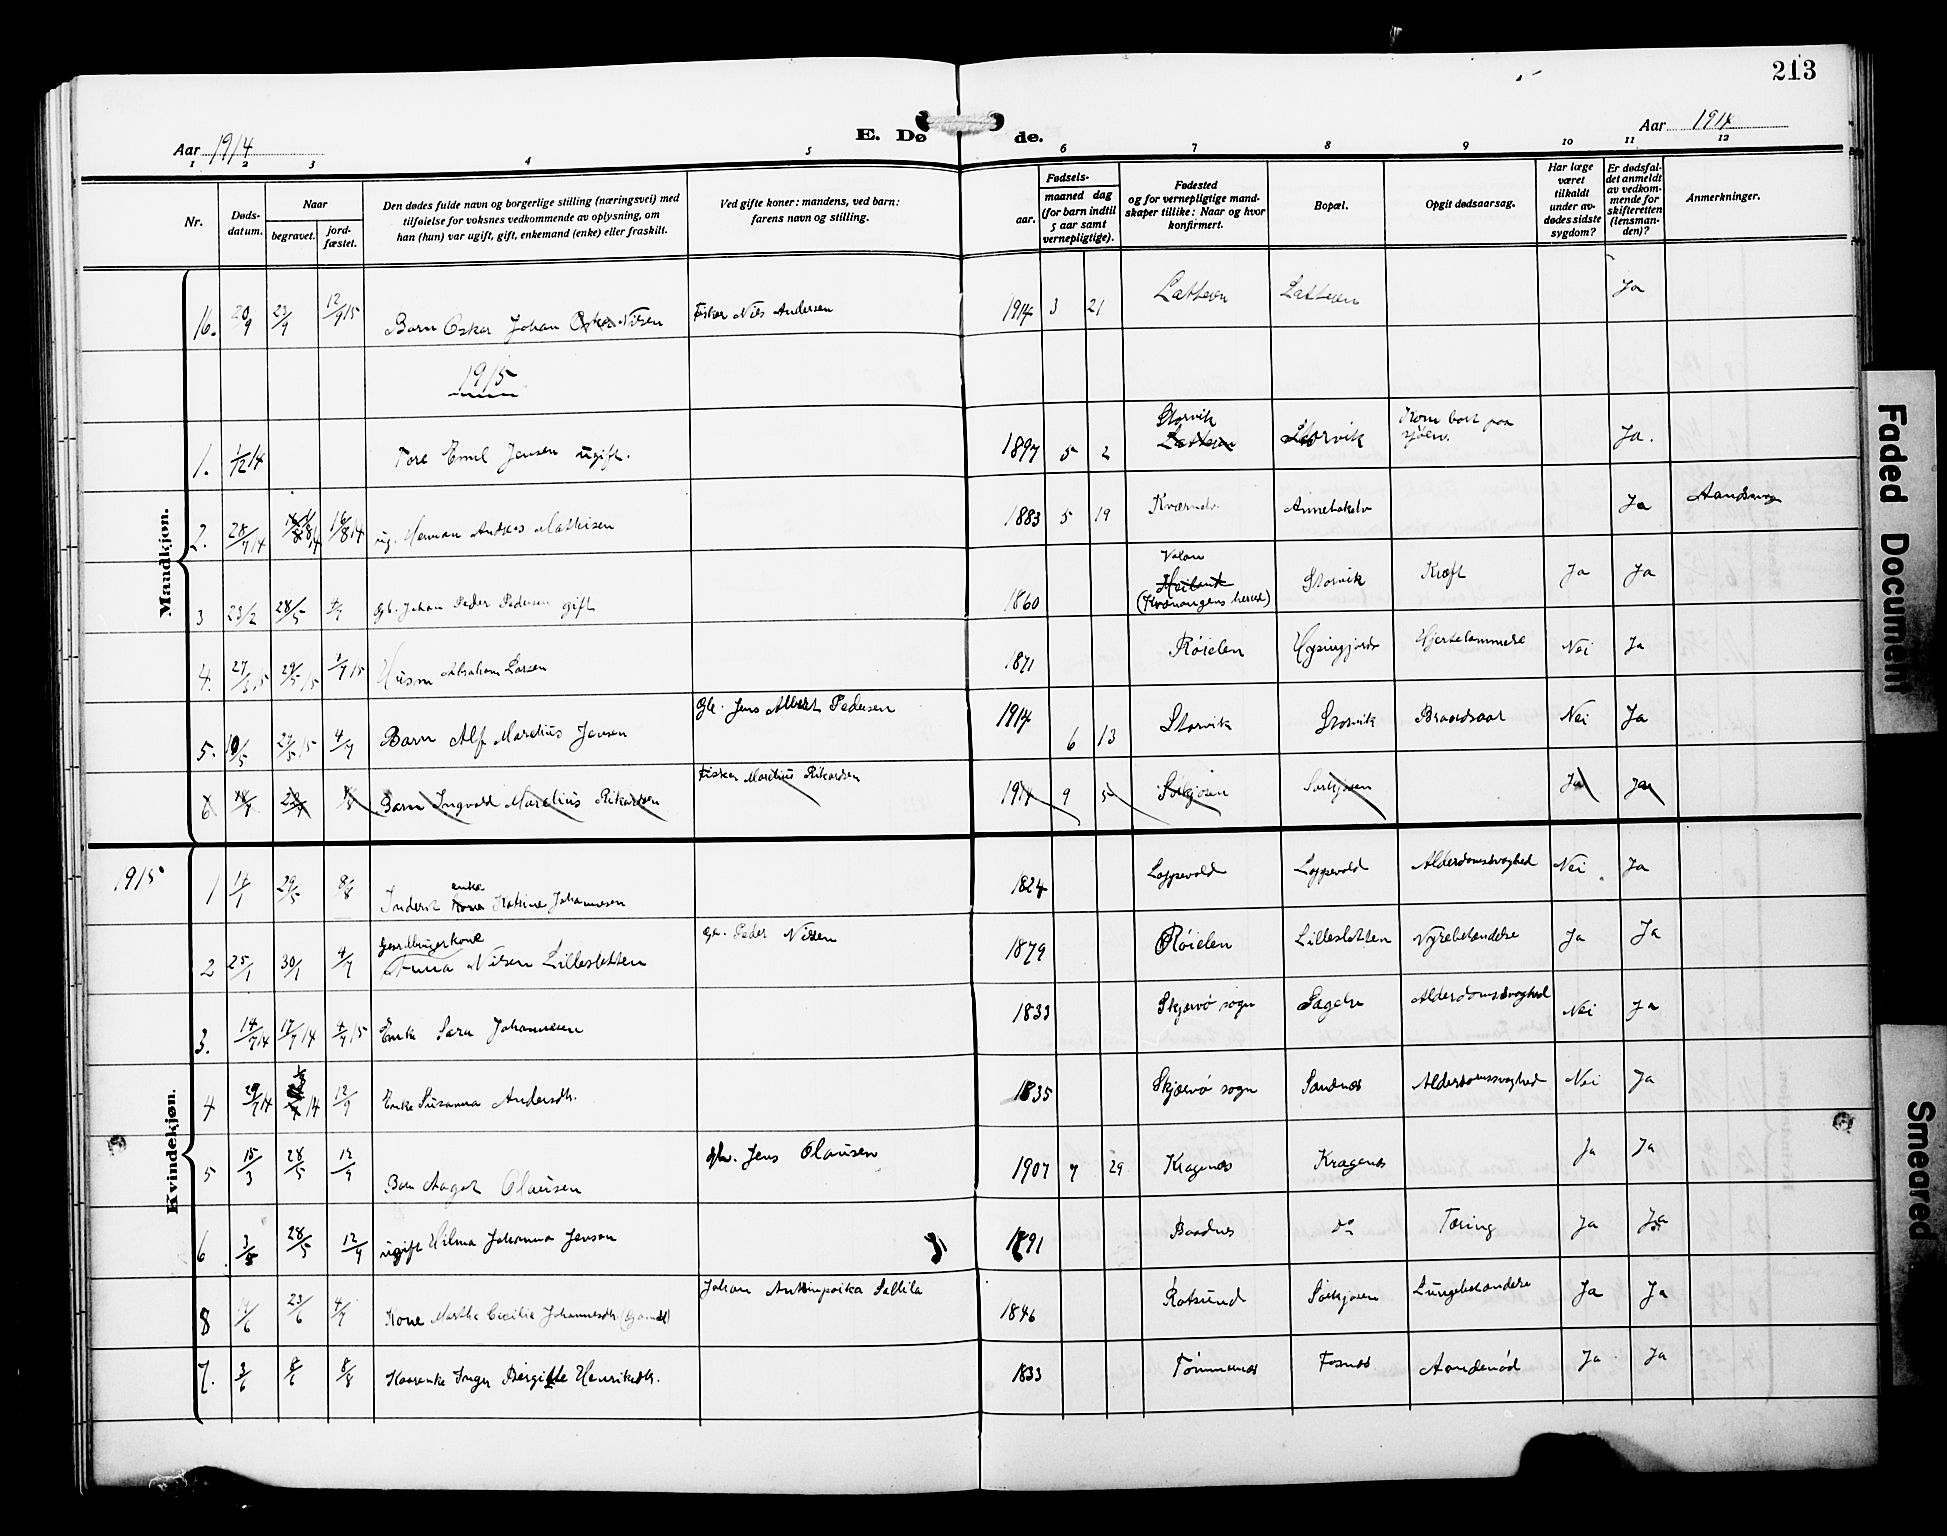 213
Aar 1914
E. Døde.
Aar 1914
1 2 3 4 5 6 7 8 9 10 11 12
Nr.
Døds-
datum.
Naar
begravet.
jord-
fæstet.
Den dødes fulde navn og borgerlige stilling (næringsvei) med
tilføielse for voksnes vedkommende av oplysning, om
han (hun) var ugift, gift, enkemand (enke) eller fraskilt.
Ved gifte koner: mandens, ved barn:
farens navn og stilling.
Fødsels-
aar.
maaned dag
(for barn indtil
5 aar samt
vernepligtige).
Fødested
og for vernepligtige mand-
skaper tillike: Naar og hvor
konfirmert.
Bopæl.
Opgit dødsaarsag.
Har læge
været
tilkaldt
under av-
dødes sidste
sygdom?
Er dødsfal-
det anmeldt
av vedkom-
mende for
skifteretten
(lensman-
den)?
Anmerkninger.
Mandkjøn.
16. 20/9 23/9 12/9 15 Barn Oskar Johan Oskar Nilsen Fisker Nils Andersen 1914 3 21 Latteren Latteren Ja
1915
1. 1/12 14 Tore Emil Jensen ugift. 1897 5 2 Storvik Latteren Storvik Kom bort paa sjøen. Ja.
2. 28/7 14 14/8 14 ug. Herman Andreas Mathisen 1883 5 19 Ja
3 23/2 28/5 4/7 Gb. Johan Peder Pedersen gift 1860 Valan (Kvænangens herred) Storvik Kræft Ja Ja
4. 27/3 15 29/5 15 1/9 15 Husm Abraham Larsen 1871 Røielen Hjertelammelse Nei Ja
5. 10/5 27/5 15 4/7 Barn Alf Marelius Jensen Gb. Jens Albert Pedersen 1914 6 13 Storvik Storvik Braadsaar Nei Ja
6 Barn Ingvald Marelius Rikardsen Fisker Marelius Rikardsen 1914 9 5 Sørkjosen Sørkjosen Ja Ja
Kvindekjøn.
1915
1 14/1 29/5 8/8 Inderst enke Kone Katrine Johannesen 1824 Loppevold Loppevold Alderdomssvaghed Nei Ja
2 25/1 30/1 4/7 Gaardbrugerkone Anna Nilsen Lillesletten Gb. Peder Nilsen 1879 Røielen Lillesletten Nyrebetændelse Ja Ja
3. 14/7 14 17/7 14 4/7 15 Enke Sara Johannesen 1833 Skjervø sogn Alderdomssvaghed Nei Ja
4 29/7 14 12/9 Enke Susanna Andersdtr. 1835 Skjærvø sogn Sandnes Alderdomssvaghed Nei Ja
5 15/3 28/5 12/9 Barn Aagot Olausen Gbr. Jens Olausen 1907 7 29 Kragenæs Kragenæs Ja Ja
6 28/5 12/9 ugift Hilma Johanna Jenson 1891 Baadnes do Tæring Ja Ja
8 14/6 23/6 4/7 Kone Martha Cecilie Johannesdtr. Johan Anttinpoika Sallila 1846 Rotsund Sørkjosen Lungebetændelse Ja Ja
7. 3/6 8/6 8/8 Kaarenke Inger Birgitte Henriksdtr. 1833 Fosnes Aandenød Ja Ja
Faded Document
Smeared